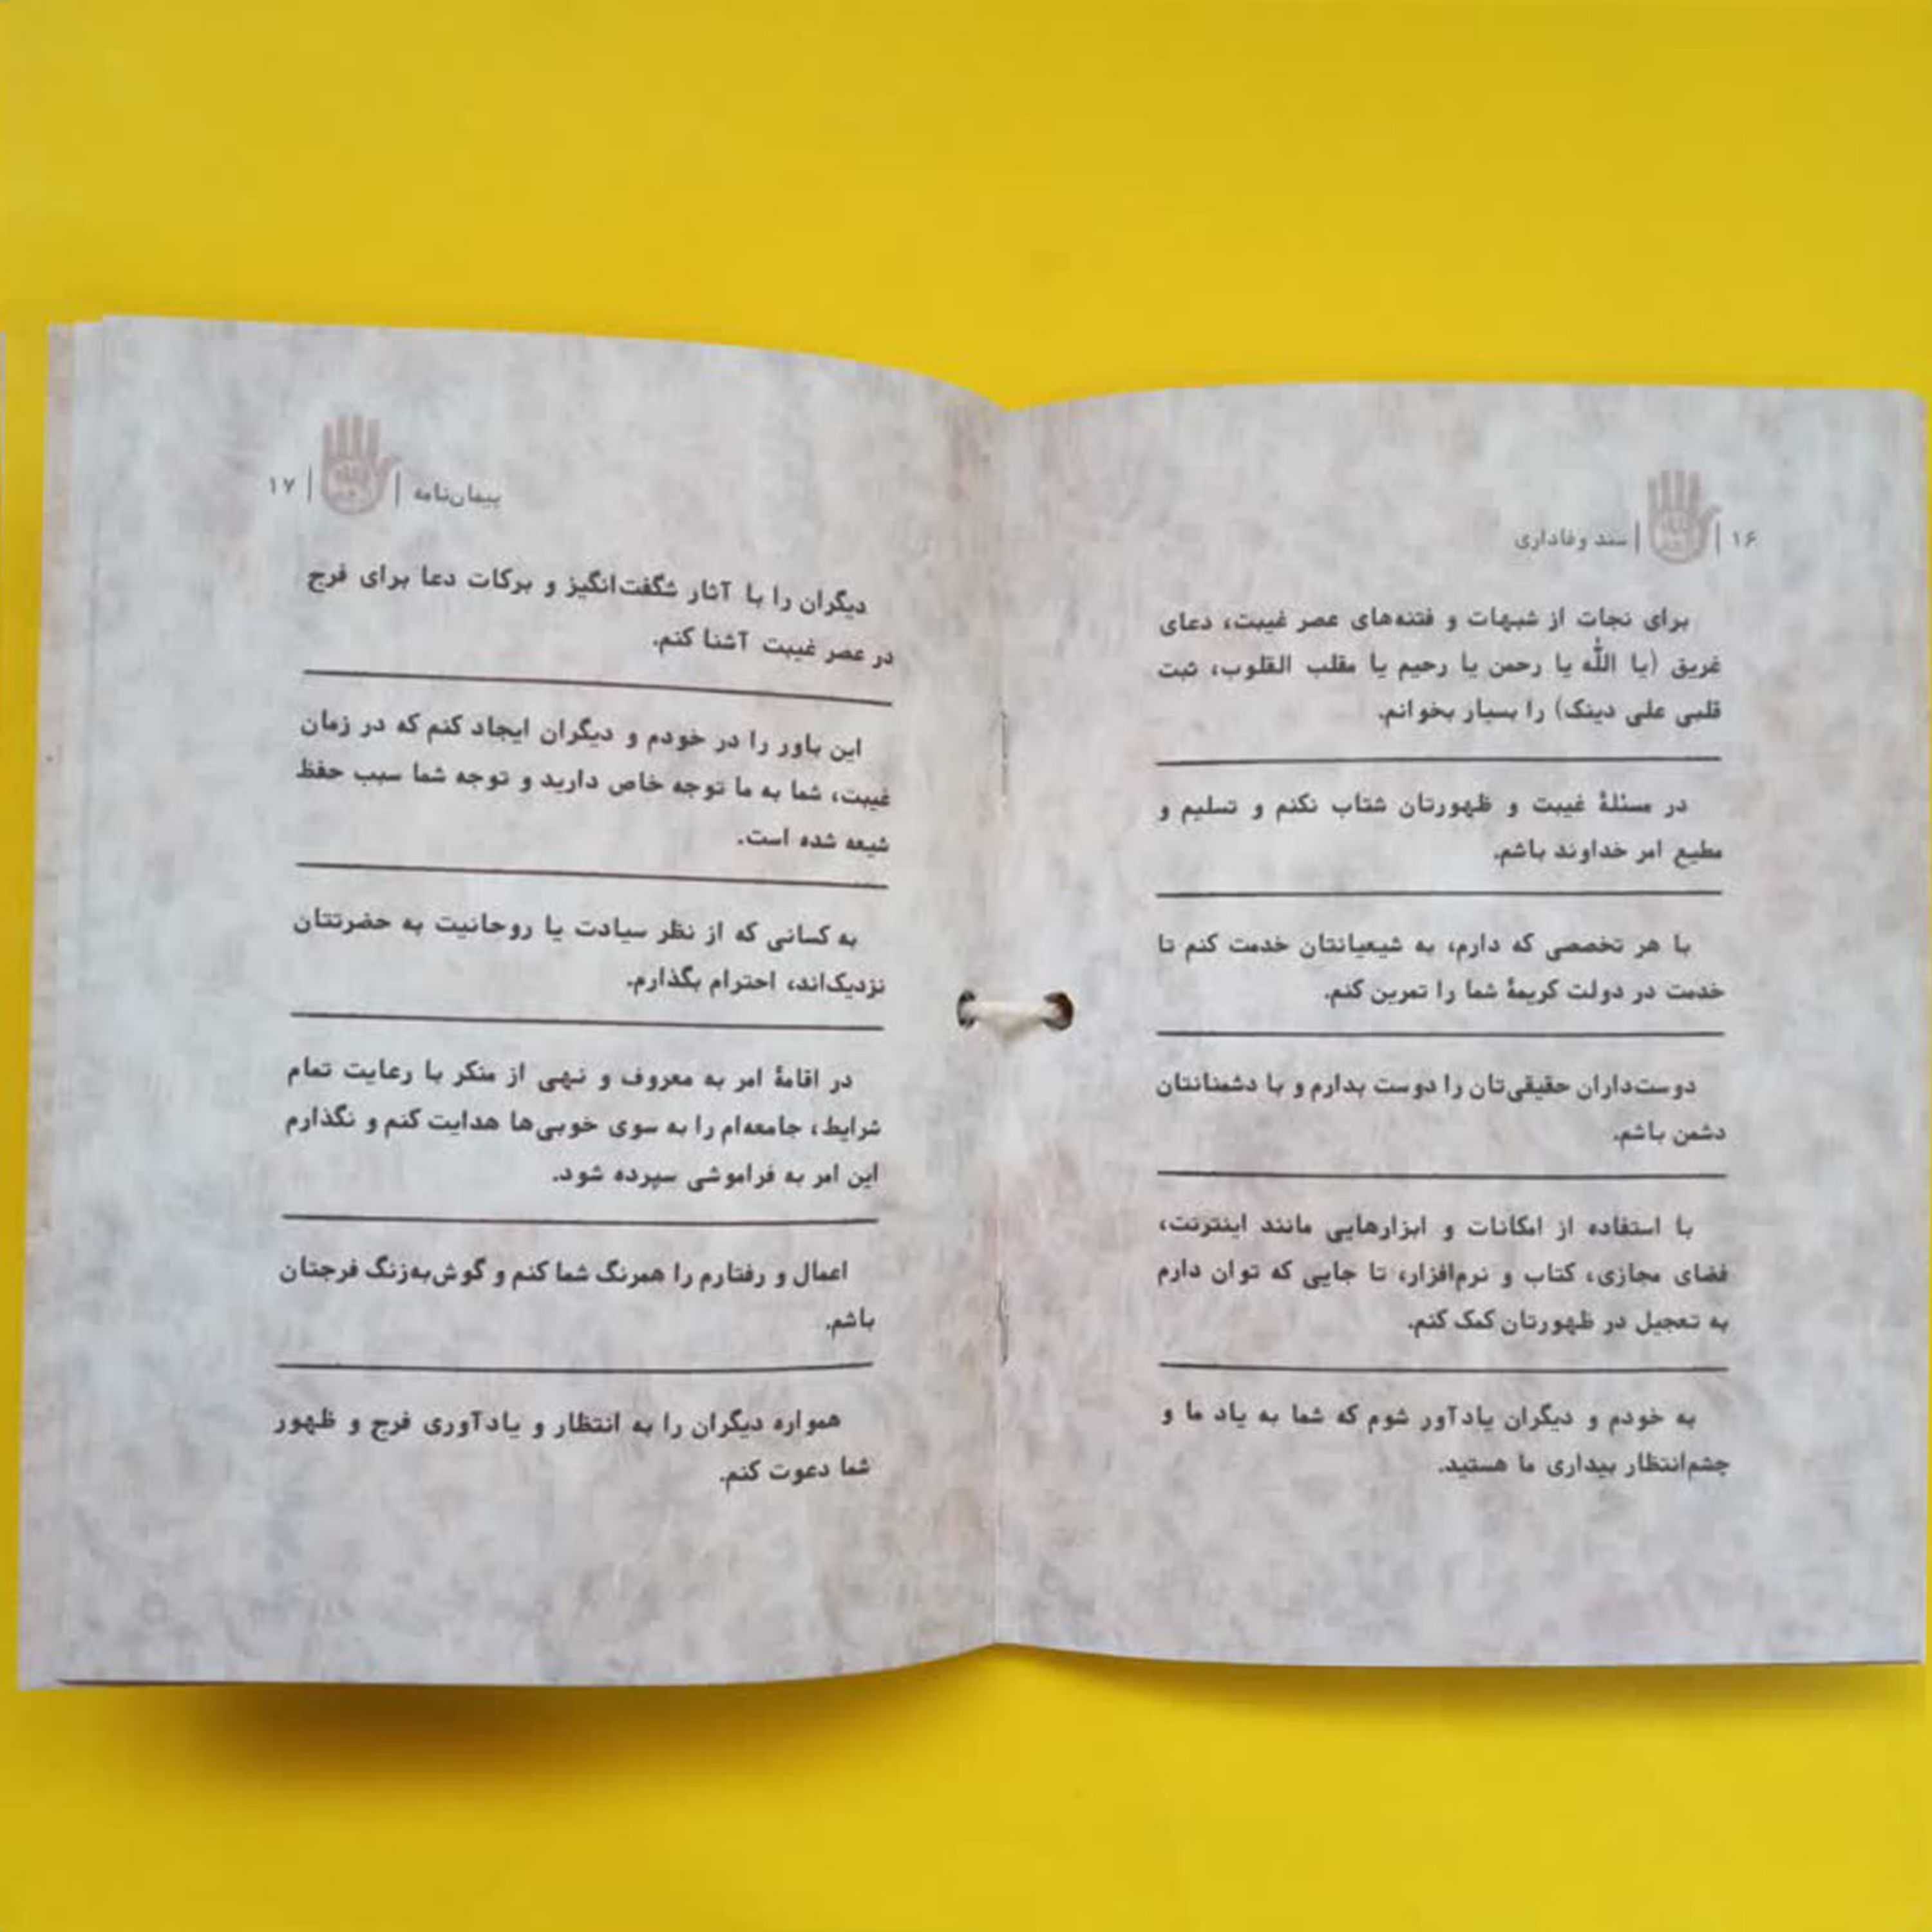 ۱۶ | | سند وفاداری
برای نجات از شبهات و فتنه‌های عصر غیبت، دعای
غریق (یا اللّه یا رحمن یا رحیم یا مقلب القلوب، ثبت
قلبی علی دینک) را بسیار بخوانم.
در مسئلهٔ غیبت و ظهورتان شتاب نکنم و تسلیم و
مطیع امر خداوند باشم.
با هر تخصصی که دارم، به شیعیانتان خدمت کنم تا
خدمت در دولت کریمهٔ شما را تمرین کنم.
دوست‌داران حقیقی‌تان را دوست بدارم و با دشمنانتان
دشمن باشم.
با استفاده از امکانات و ابزارهایی مانند اینترنت،
فضای مجازی، کتاب و نرم‌افزار، تا جایی که توان دارم
به تعجیل در ظهورتان کمک کنم.
به خودم و دیگران یادآور شوم که شما به یاد ما و
چشم‌انتظار بیداری ما هستید.
پیمان‌نامه | | ۱۷
دیگران را با آثار شگفت‌انگیز و برکات دعا برای فرج
در عصر غیبت آشنا کنم.
این باور را در خودم و دیگران ایجاد کنم که در زمان
غیبت، شما به ما توجه خاص دارید و توجه شما سبب حفظ
شیعه شده است.
به کسانی که از نظر سیادت یا روحانیت به حضرتتان
نزدیک‌اند، احترام بگذارم.
در اقامهٔ امر به معروف و نهی از منکر با رعایت تمام
شرایط، جامعه‌ام را به سوی خوبی‌ها هدایت کنم و نگذارم
این امر به فراموشی سپرده شود.
اعمال و رفتارم را همرنگ شما کنم و گوش‌به‌زنگ فرجتان
باشم.
همواره دیگران را به انتظار و یادآوری فرج و ظهور
شما دعوت کنم.